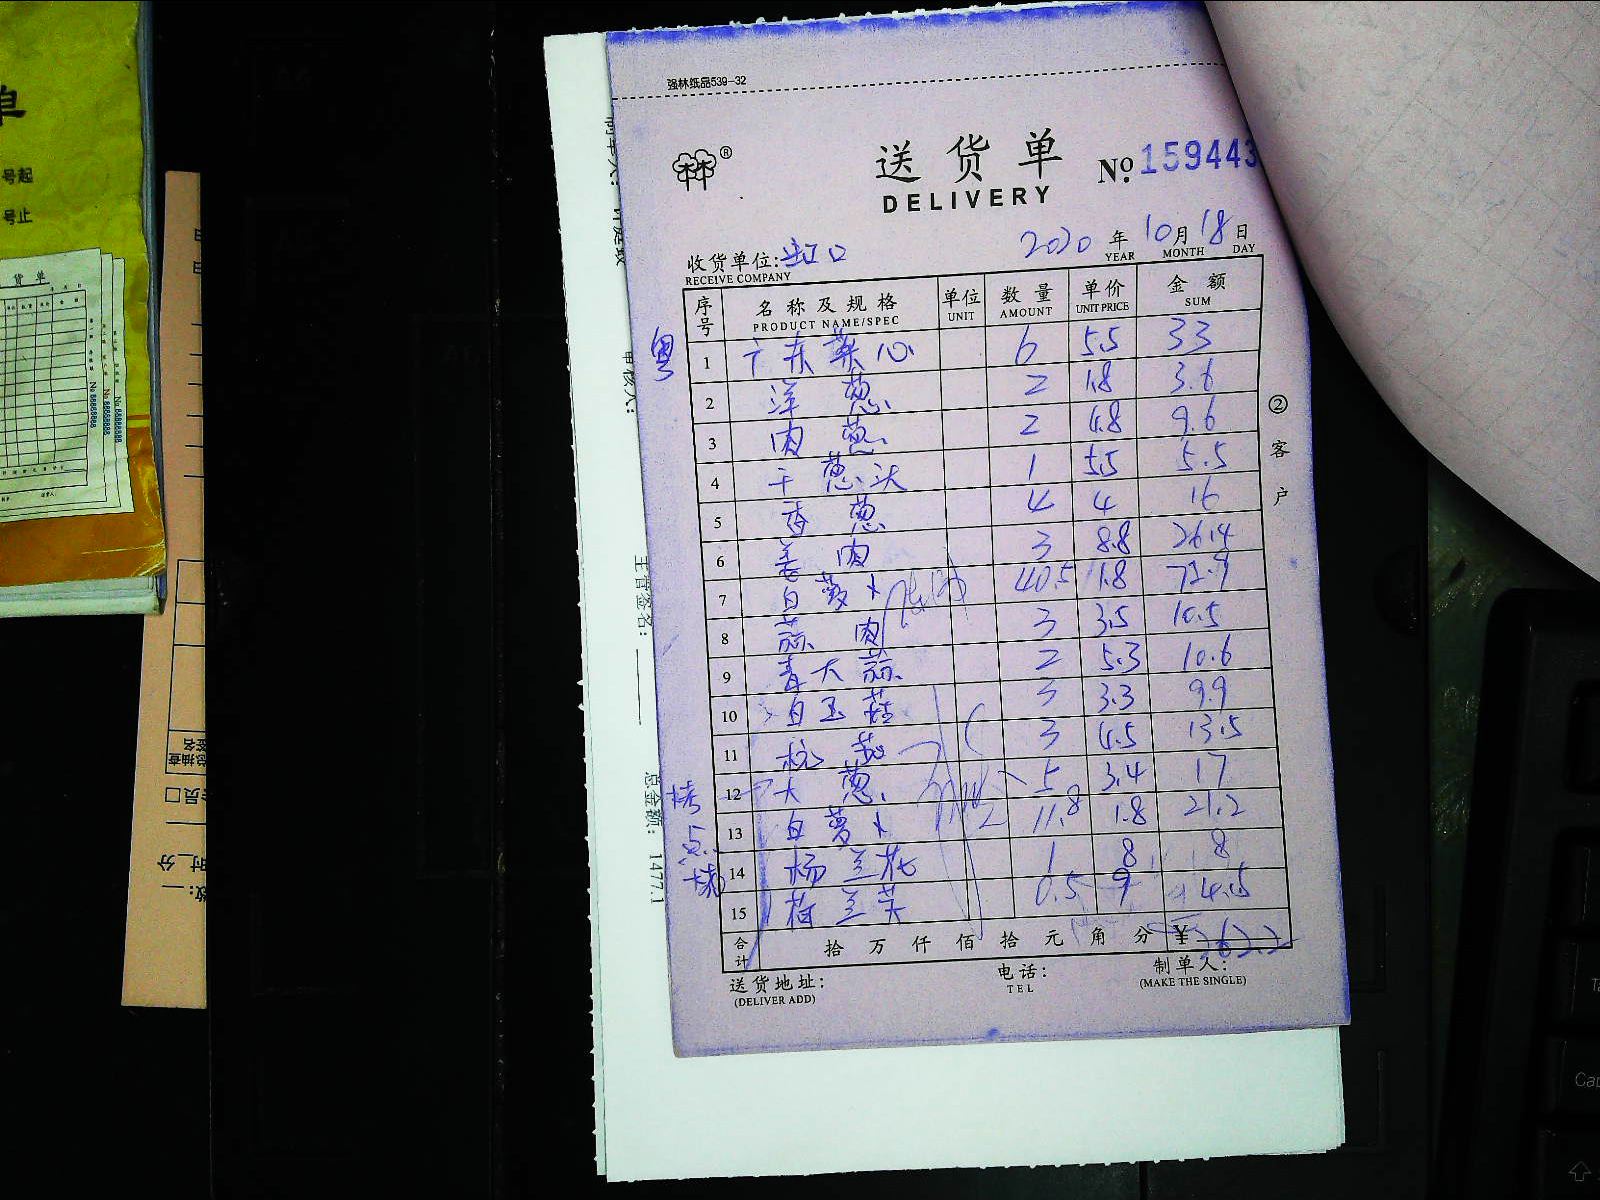 强林纸品539-32
送货单
DELIVERY
No. 159443
收货单位: 虹口
RECEIVE COMPANY
2020 年 10 月 18 日
YEAR MONTH DAY
序号 名称及规格 单位 数量 单价 金额
PRODUCT NAME/SPEC UNIT AMOUNT UNIT PRICE SUM
粤
1 广东菜心 6 5.5 33
2 洋葱 2 1.8 3.6
3 肉葱 2 4.8 9.6
4 干葱头 1 5.5 5.5
5 香葱 4 4 16
6 姜肉 3 8.8 26.4
7 白萝卜 40.5 1.8 72.9
8 蒜肉 3 3.5 10.5
9 青大蒜 2 5.3 10.6
10 白玉菇 3 3.3 9.9
11 3 4.5 13.5
12 大葱 5 3.4 17
13 白萝卜 11.8 1.8 21.2
14 杨兰花 1 8 8
15 荷兰芹 0.5 9 4.5
合计 拾 万 仟 佰 拾 元 角 分 ¥
送货地址:
(DELIVER ADD)
电话:
TEL
制单人:
(MAKE THE SINGLE)
②客户
审核人:
主管签名:
总金额: 1477.1
单
号起
号止
货单